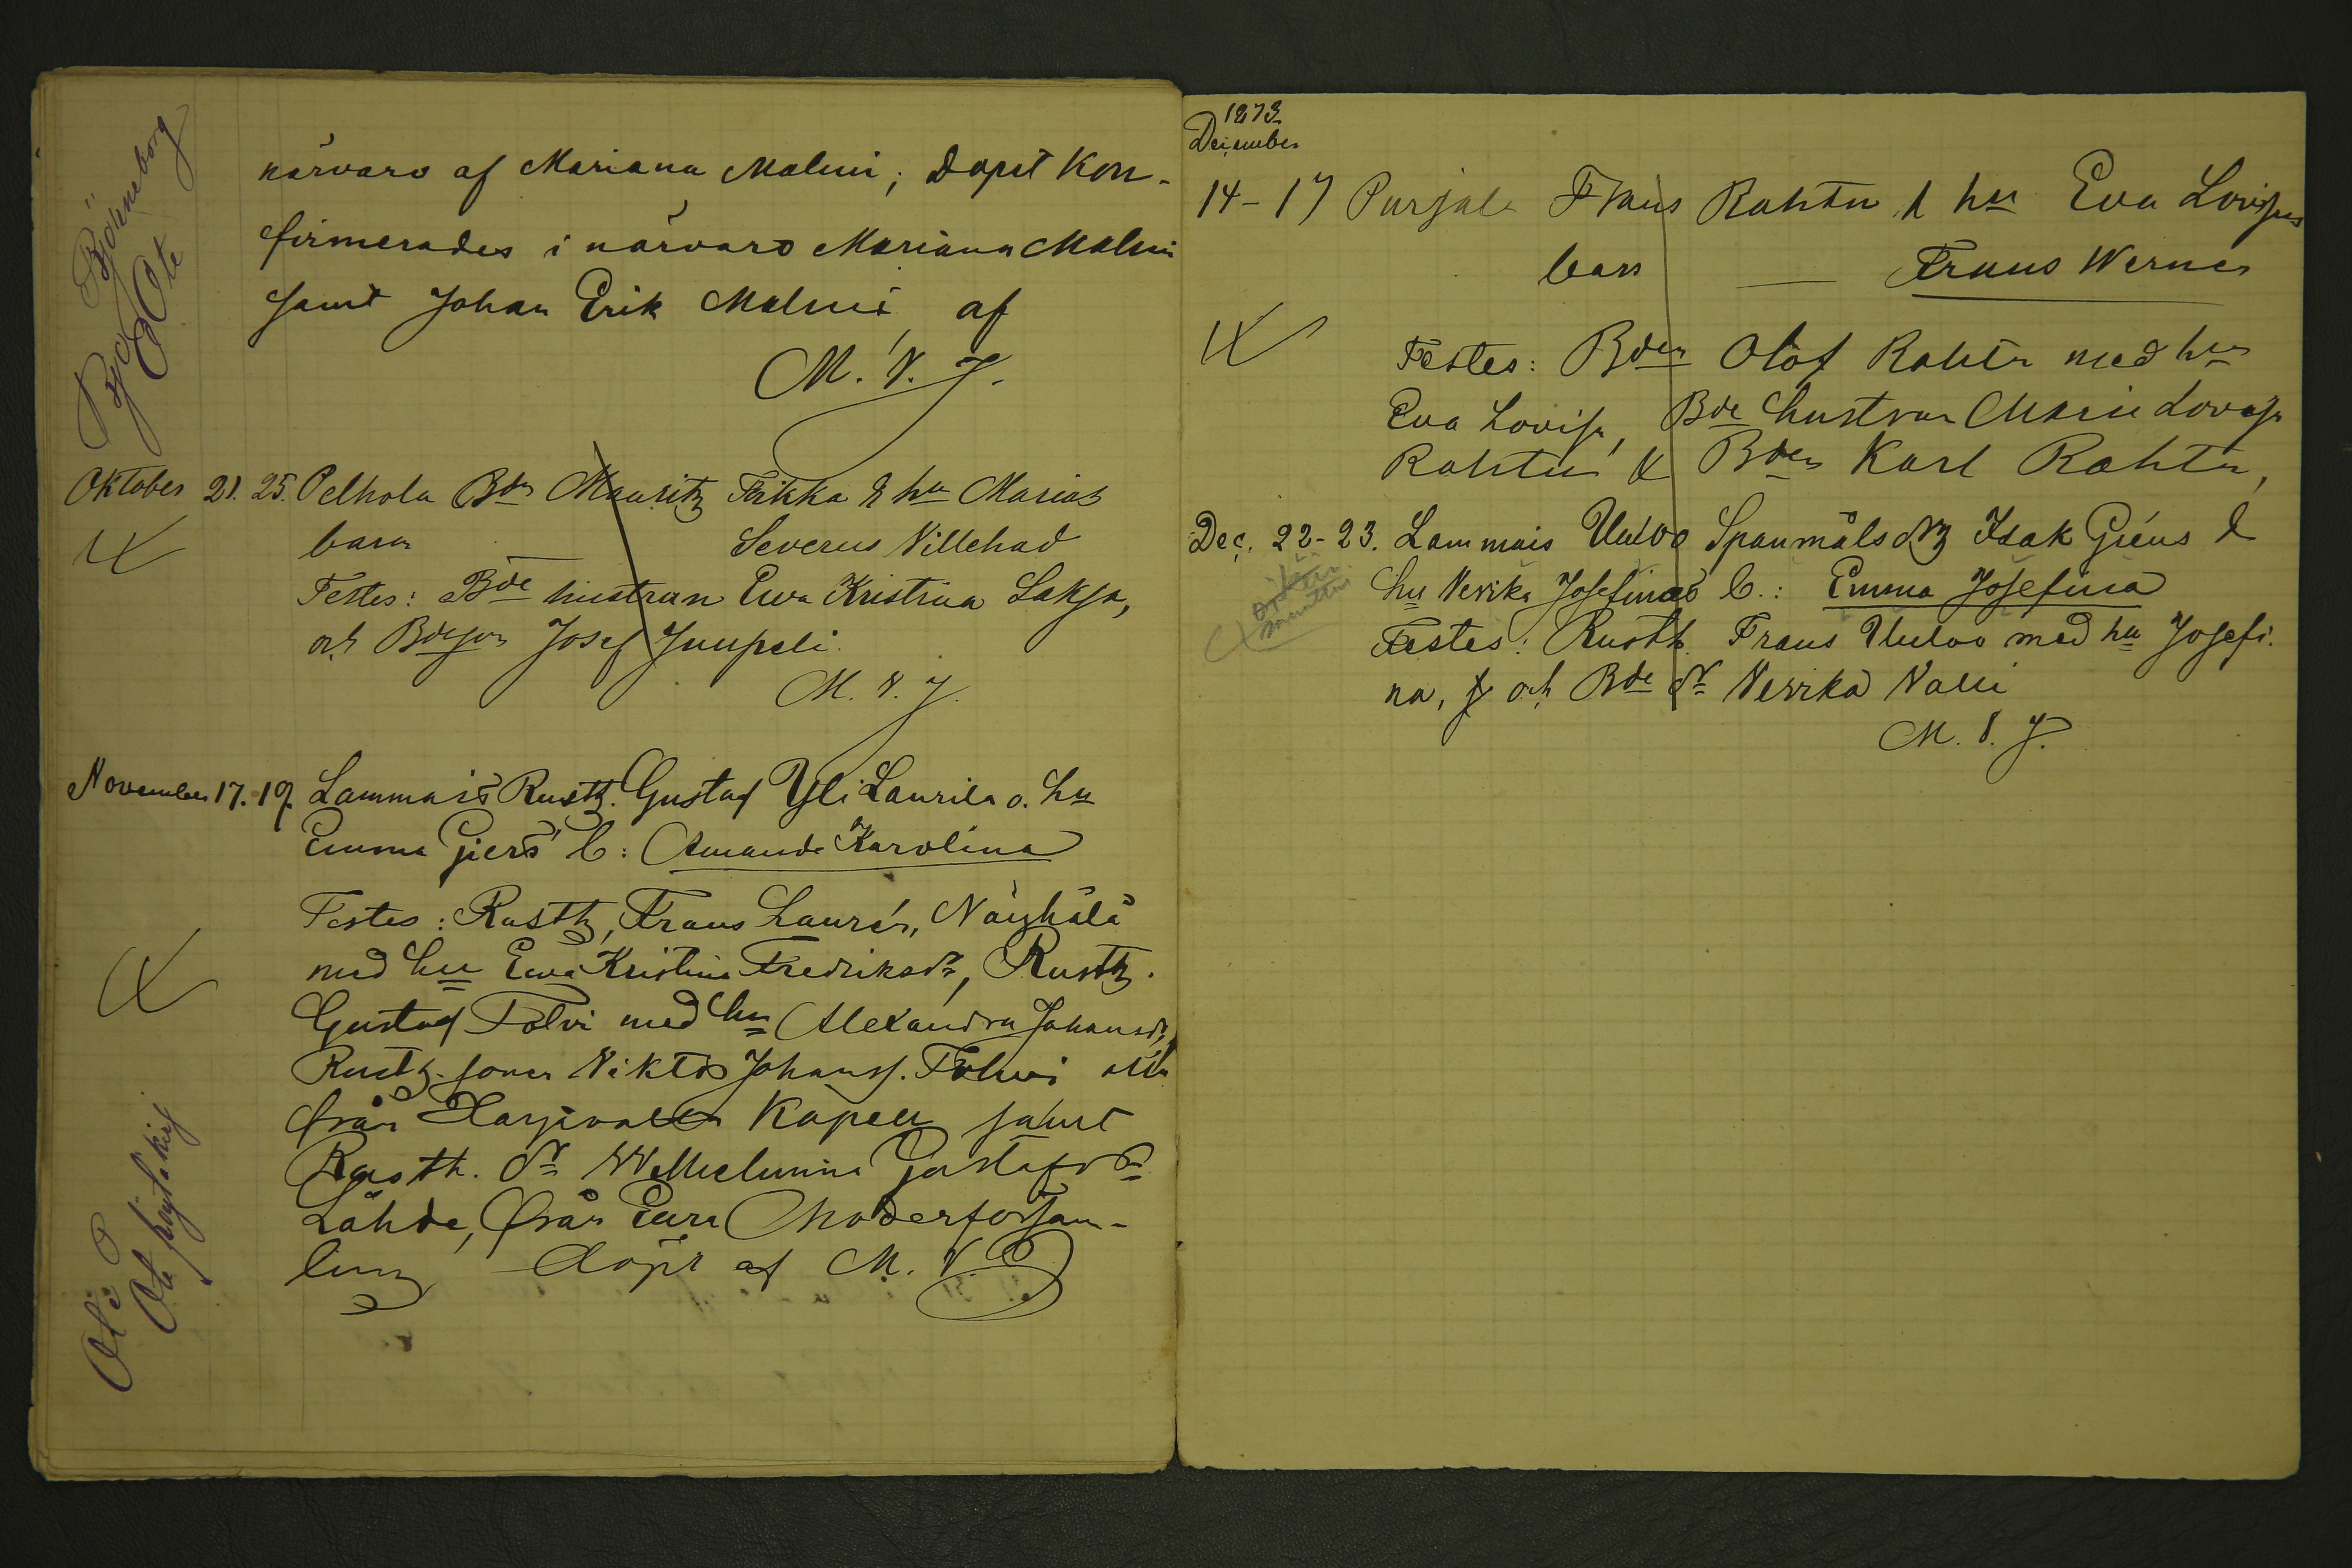 närvaro af Mariana Malmi; dopet kon-
firmerades i närvaro Mariana Malmi
samt Johan Erik Malmi, af
M. V. J.
Björneborg
Oktober 21. 25. Pelhola Bdn Mauritz Tikka & hu Marias
barn Severus Villehad
Testes: Bde hustrun Ewa Kristina Laksa,
och Bdeson Josef Juupeli.
M. V. J.
November 17. 19. Lammais Rusth. Gustaf Yli Laurila o. hu
Emma Giers b: Amanda Karolina
Testes: Rusth, Frans Laurén, Näyhälä
med hu Ewa Kristina Fredriksdr, Rusth.
Gustaf Polvi med hu Alexandra Johansdr,
Rusth. sonen Viktor Johanss. Polvi alla
från Harjavalta Kapell samt
Rusth. dr Wilhelmina Gustafsdr
Lähde, från Eura Moderförsam-
ling döpt af M. V. J.
1873
December
14-17 Purjala Frans Rahtu & hu Eva Lovisas
barn — Frans Werner
Testes: Bden Olof Rahtu med hu
Eva Lovisa, Bde hustrun Maria Lovisa
Rahtu & Bden Karl Rahtu,
Dec. 22-23. Lammais Uutoo Spanmåls Isak Giéus &
hu Verika Josefinas b.: Emma Josefina
Testes: Rusth. Frans Uutoo med hu Josefi-
na, & och Bde dr Verika Valli
M. V. J.